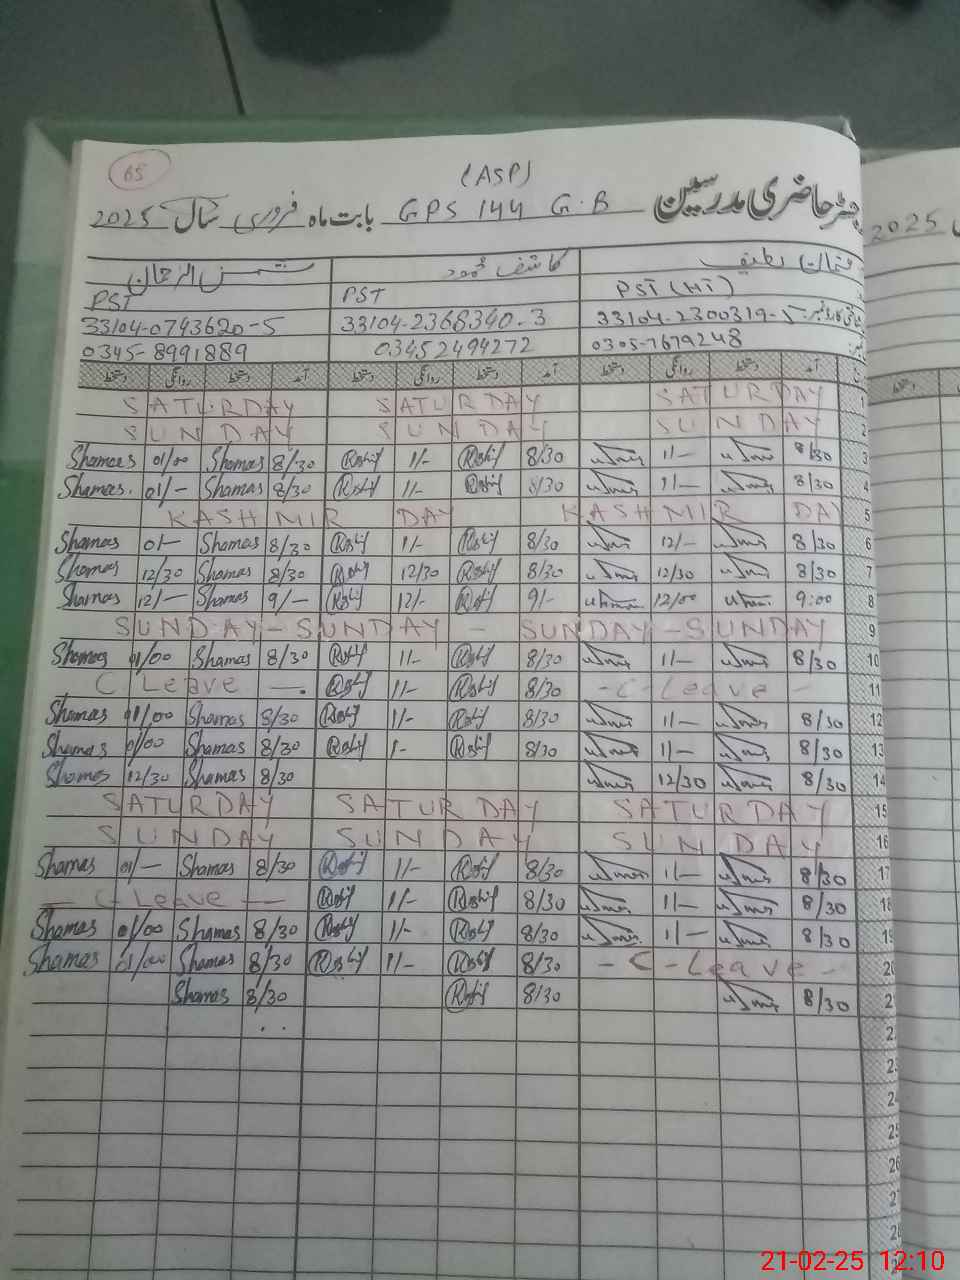 65
(ASP)
رجسٹر حاضری مدرسین GPS 144 G.B بابت ماہ فروری سال 2025
2025
لطیف کاشف محمود شمس الرحمان
PST (HT) PST PST
33104-2300319-5 33104-2368340-3 33104-0743620-5
0305-7679248 03452494272 0345-8991889
دستخط روانگی دستخط آمد دستخط روانگی دستخط آمد دستخط روانگی دستخط آمد
SATURDAY SATURDAY SATURDAY 1
SUNDAY SUNDAY SUNDAY 2
Shamas 01/00 Shamas 8/30 1/- 8/30 1/- 8/30 3
Shamas. 01/- Shamas 8/30 1/- 8/30 1/- 8/30 4
KASHMIR DAY KASHMIR DAY 5
Shamas 01- Shamas 8/30 1/- 8/30 12/- 8/30 6
Shamas 12/30 Shamas 8/30 12/30 8/30 12/30 8/30 7
Shamas 12/- Shamas 9/- 12/- 9/- 12/00 9:00 8
SUNDAY - SUNDAY - SUNDAY - SUNDAY 9
Shamas 01/00 Shamas 8/30 1/- 8/30 1/- 8/30 10
C Leave 1/- 8/30 - C - Leave - 11
Shamas 01/00 Shamas 8/30 1/- 8/30 1/- 8/30 12
Shamas 01/00 Shamas 8/30 1- 8/30 1/- 8/30 13
Shamas 12/30 Shamas 8/30 12/30 8/30 14
SATURDAY SATURDAY SATURDAY 15
SUNDAY SUNDAY SUNDAY 16
Shamas 01/- Shamas 8/30 1/- 8/30 1/- 8/30 17
C - Leave 1/- 8/30 1/- 8/30 18
Shamas 01/00 Shamas 8/30 1/- 8/30 1/- 8/30 19
Shamas 01/00 Shamas 8/30 1/- 8/30 - C - Leave - 20
Shamas 8/30 8/30 8/30 2
2
23
24
25
26
2
28
21-02-25 12:10